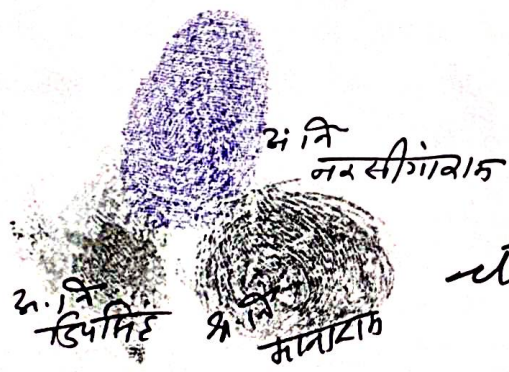 अं।नि
नरसीगांराम
अ.नि
डिपसिंह
अ.नि
मानाराम